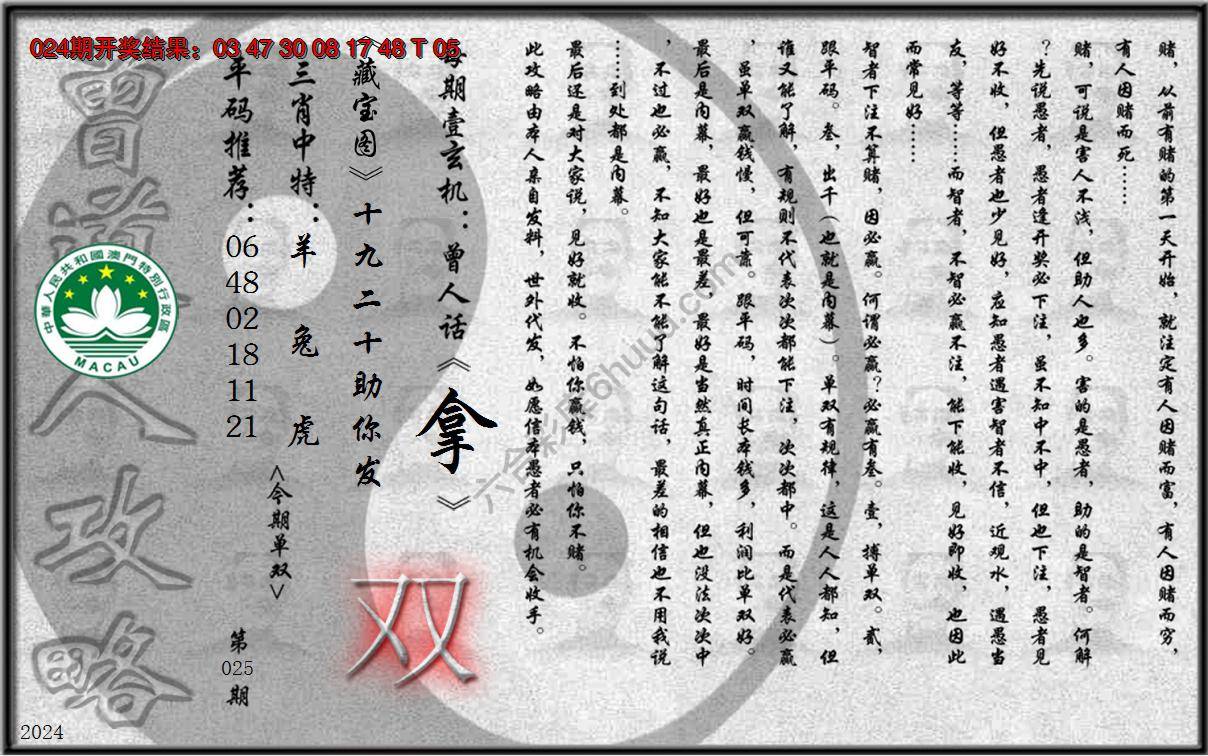 024期开奖结果：03 47 30 08 17 48 T 05
赌，从前有赌的第一天开始，就注定有人因赌而富，有人因赌而穷，
有人因赌而死……
赌，可说是害人不浅，但助人也多。害的是愚者，助的是智者。何解
？先说愚者，愚者逢开奖必下注，虽不知中不中，但也下注，愚者见
好不收，但愚者也少见好，应知愚者遇害智者不信，近观水，遇愚当
友，等等……而智者，不智必赢不注，能下能收，见好即收，也因此
而常见好……
智者下注不算赌，因必赢。何谓必赢？必赢有叁。壹，搏单双。贰，
跟平码。叁，出千（也就是内幕）。单双有规律，这是人人都知，但
谁又能了解，有规则不代表次次都能下注，次次都中。而是代表必赢
，虽单双赢钱慢，但可靠。跟平码，时间长本钱多，利润比单双好。
最后是内幕，最好也是最差，最好是当然真正内幕，但也没法次次中
，不过也必赢，不知大家能不能了解这句话，最差的相信也不用我说
……到处都是内幕。
最后还是对大家说，见好就收。不怕你赢钱，只怕你不赌。
此攻略由本人亲自发料，世外代发，如愿信本愚者必有机会收手。
每期壹玄机：曾人话《拿》
《藏宝图》十九二十助你发
双
三肖中特：羊 兔 虎
<今期单双>
平码推荐：06 48 02 18 11 21
第025期
曾道人攻略
中華人民共和國澳門特別行政區
MACAU
六合彩库6huuu.com
2024